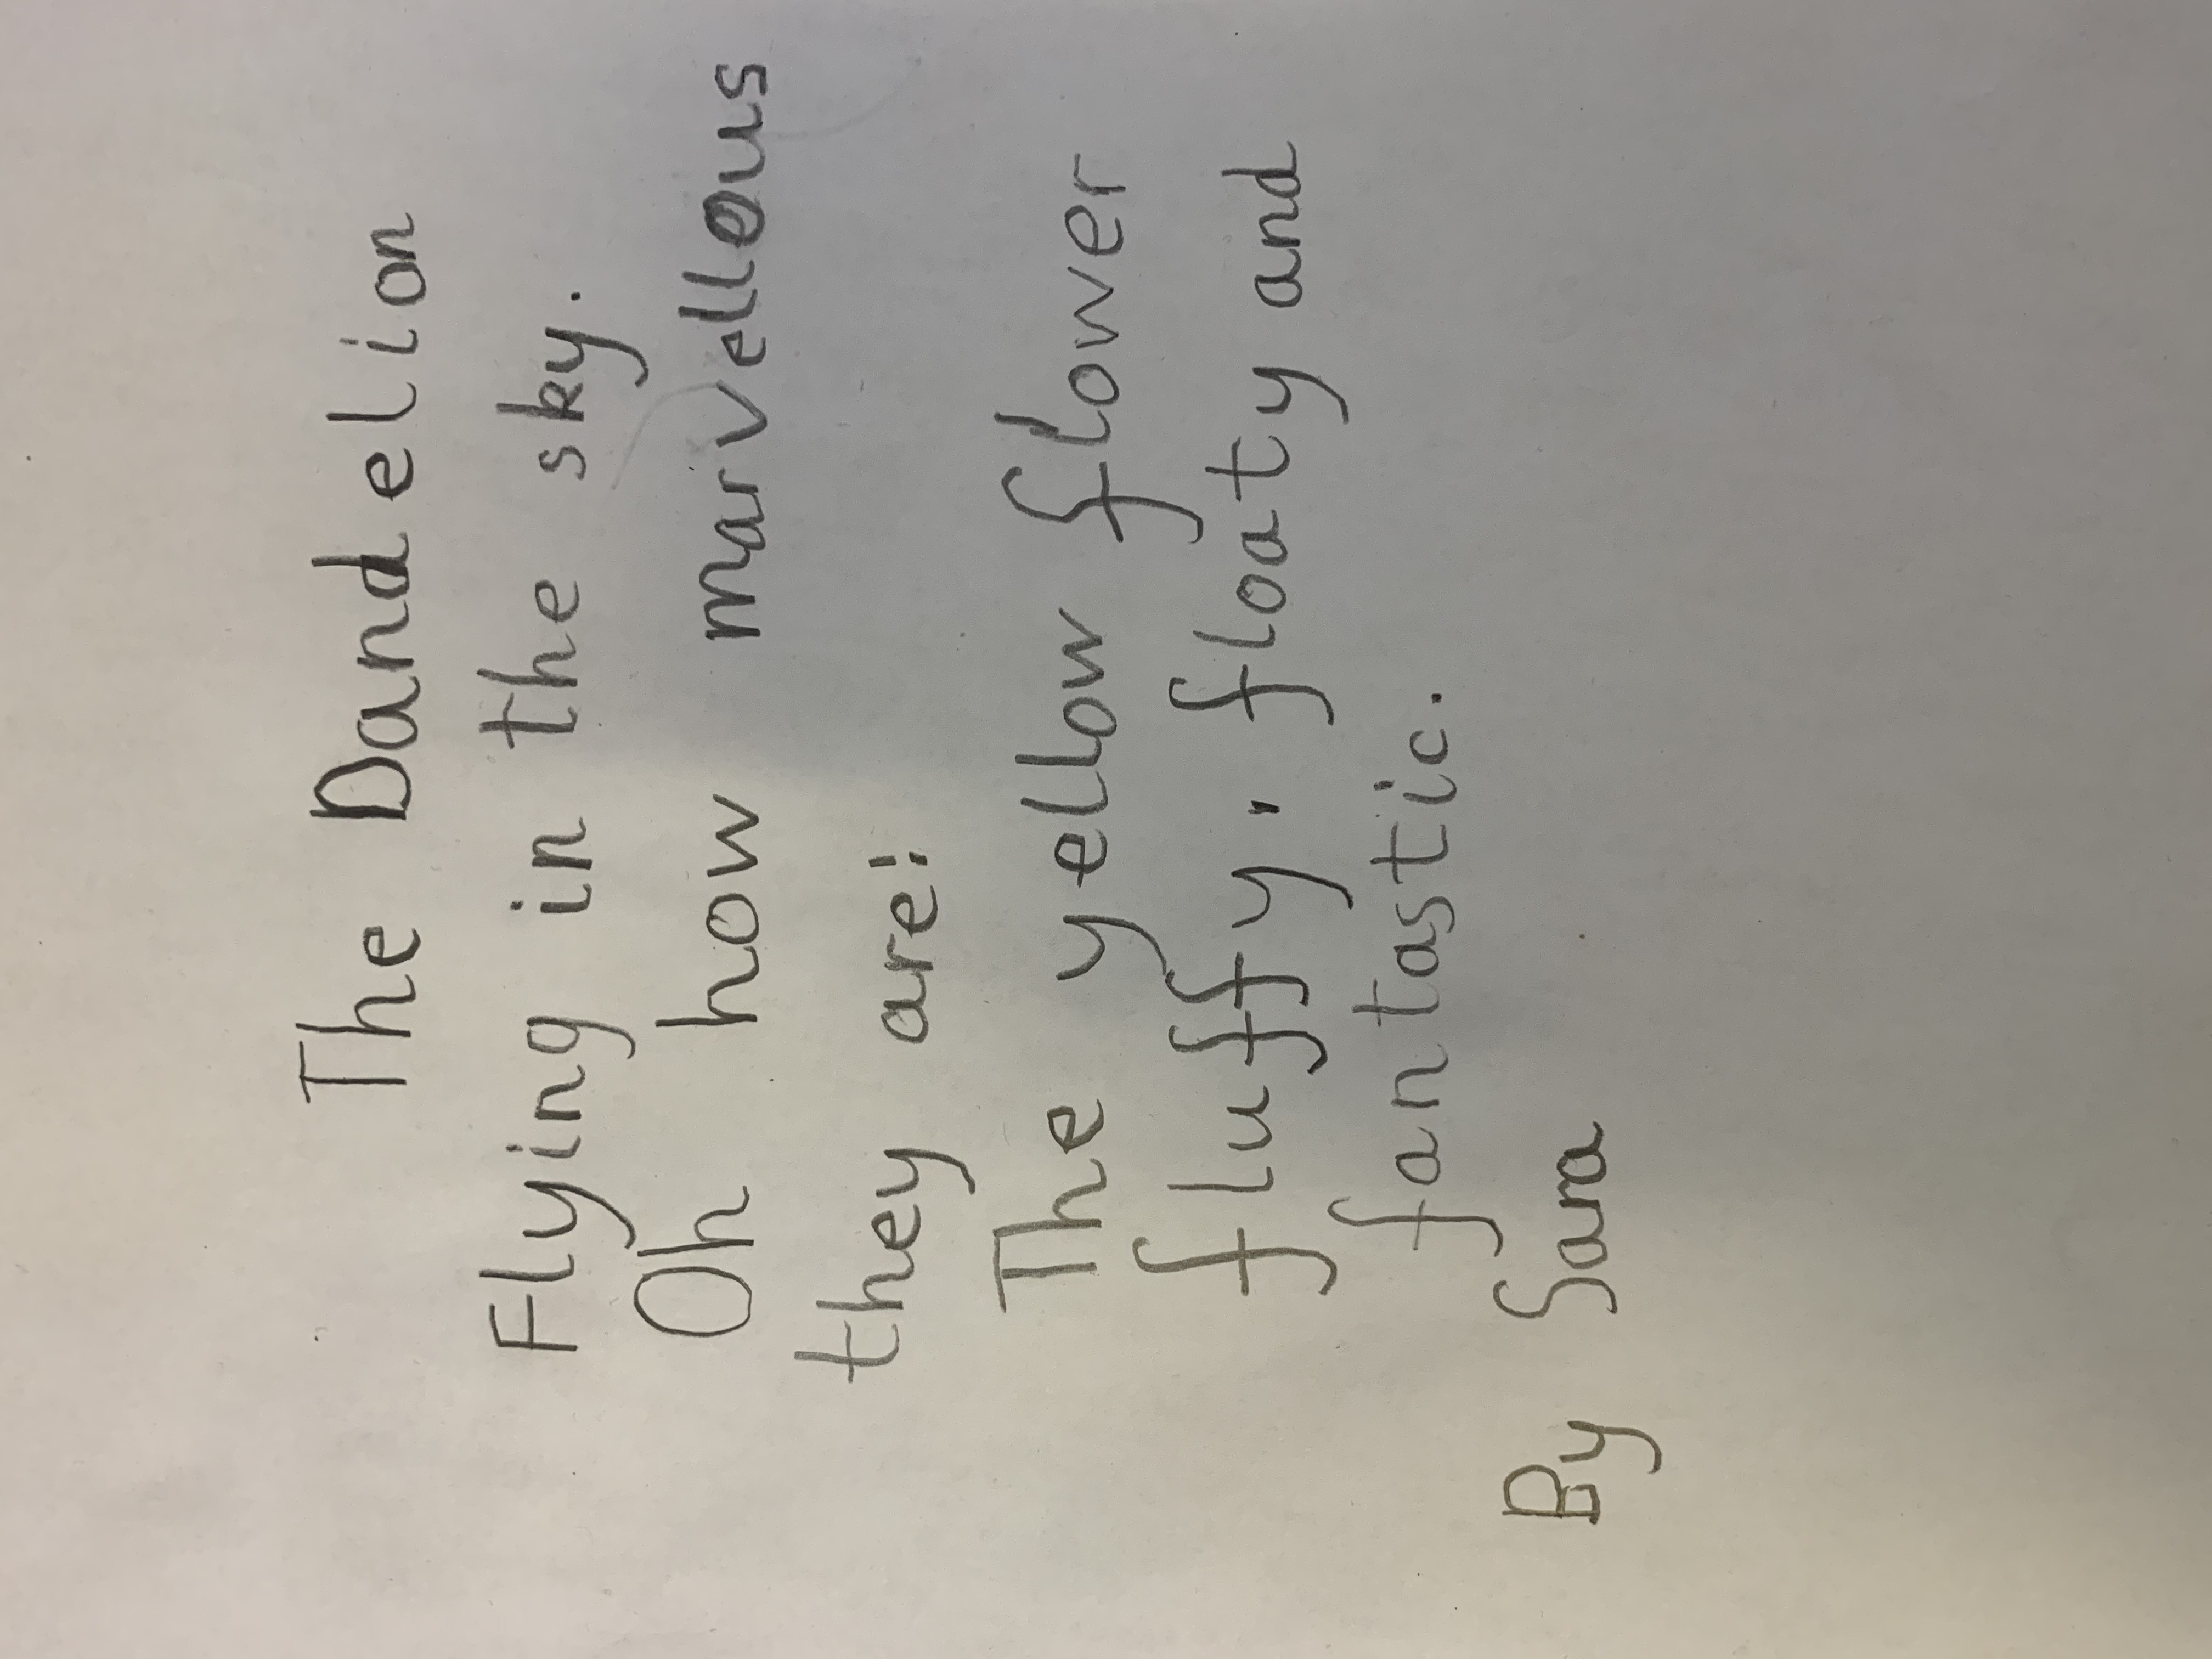 The Dandelion
Flying in the sky.
Oh how marvellous
they are!
The yellow flower
fluffy, floaty and
fantastic.
By Sara